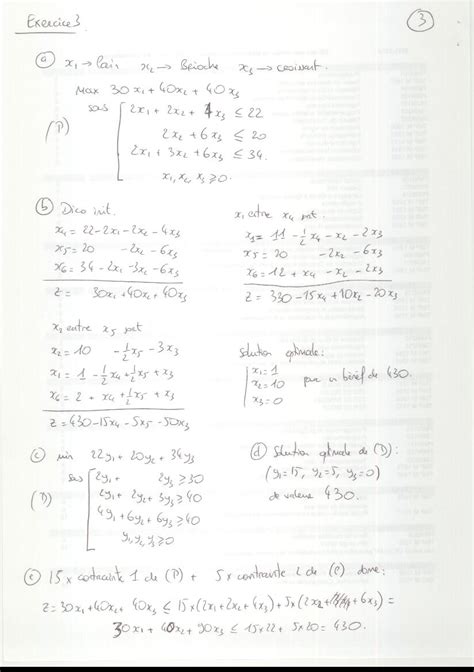 Exercice 3
3
(a) x₁ → Pain x₂ → Brioche x₃ → croissant.
Max 30x₁ + 40x₂ + 40x₃
sas 2x₁ + 2x₂ + 4x₃ ≤ 22
(P) 2x₂ + 6x₃ ≤ 20
2x₁ + 3x₂ + 6x₃ ≤ 34.
x₁, x₂, x₃ ≥ 0.
(b) Dico init.
x₄ = 22 - 2x₁ - 2x₂ - 4x₃
x₅ = 20 - 2x₂ - 6x₃
x₆ = 34 - 2x₁ - 3x₂ - 6x₃
z = 30x₁ + 40x₂ + 40x₃
x₁ entre x₄ sort.
x₃ = 11 - 1/2 x₄ - x₂ - 2x₃
x₅ = 20 - 2x₂ - 6x₃
x₆ = 12 + x₄ - x₂ - 2x₃
z = 330 - 15x₄ + 10x₂ - 20x₃
x₂ entre x₅ sort
x₂ = 10 - 1/2 x₅ - 3x₃
x₁ = 1 - 1/2 x₄ + 1/2 x₅ + x₃
x₆ = 2 + x₄ + 1/2 x₅ + x₃
z = 430 - 15x₄ - 5x₅ - 50x₃
Solution optimale:
x₁ = 1
x₂ = 10 pour un bénéf de 430.
x₃ = 0
(c) min 22y₁ + 20y₂ + 34y₃
sas 2y₁ + 2y₃ ≥ 30
(D) 2y₁ + 2y₂ + 3y₃ ≥ 40
4y₁ + 6y₂ + 6y₃ ≥ 40
y₁, y₂, y₃ ≥ 0
(d) Solution optimale de (D):
(y₁ = 15, y₂ = 5, y₃ = 0)
de valeur 430.
(e) 15 x contrainte 1 de (P) + 5 x contrainte 2 de (P) donne:
z = 30x₁ + 40x₂ + 40x₃ ≤ 15 x (2x₁ + 2x₂ + 4x₃) + 5 x (2x₂ + 6x₃) =
30x₁ + 40x₂ + 90x₃ ≤ 15 x 22 + 5 x 20 = 430.